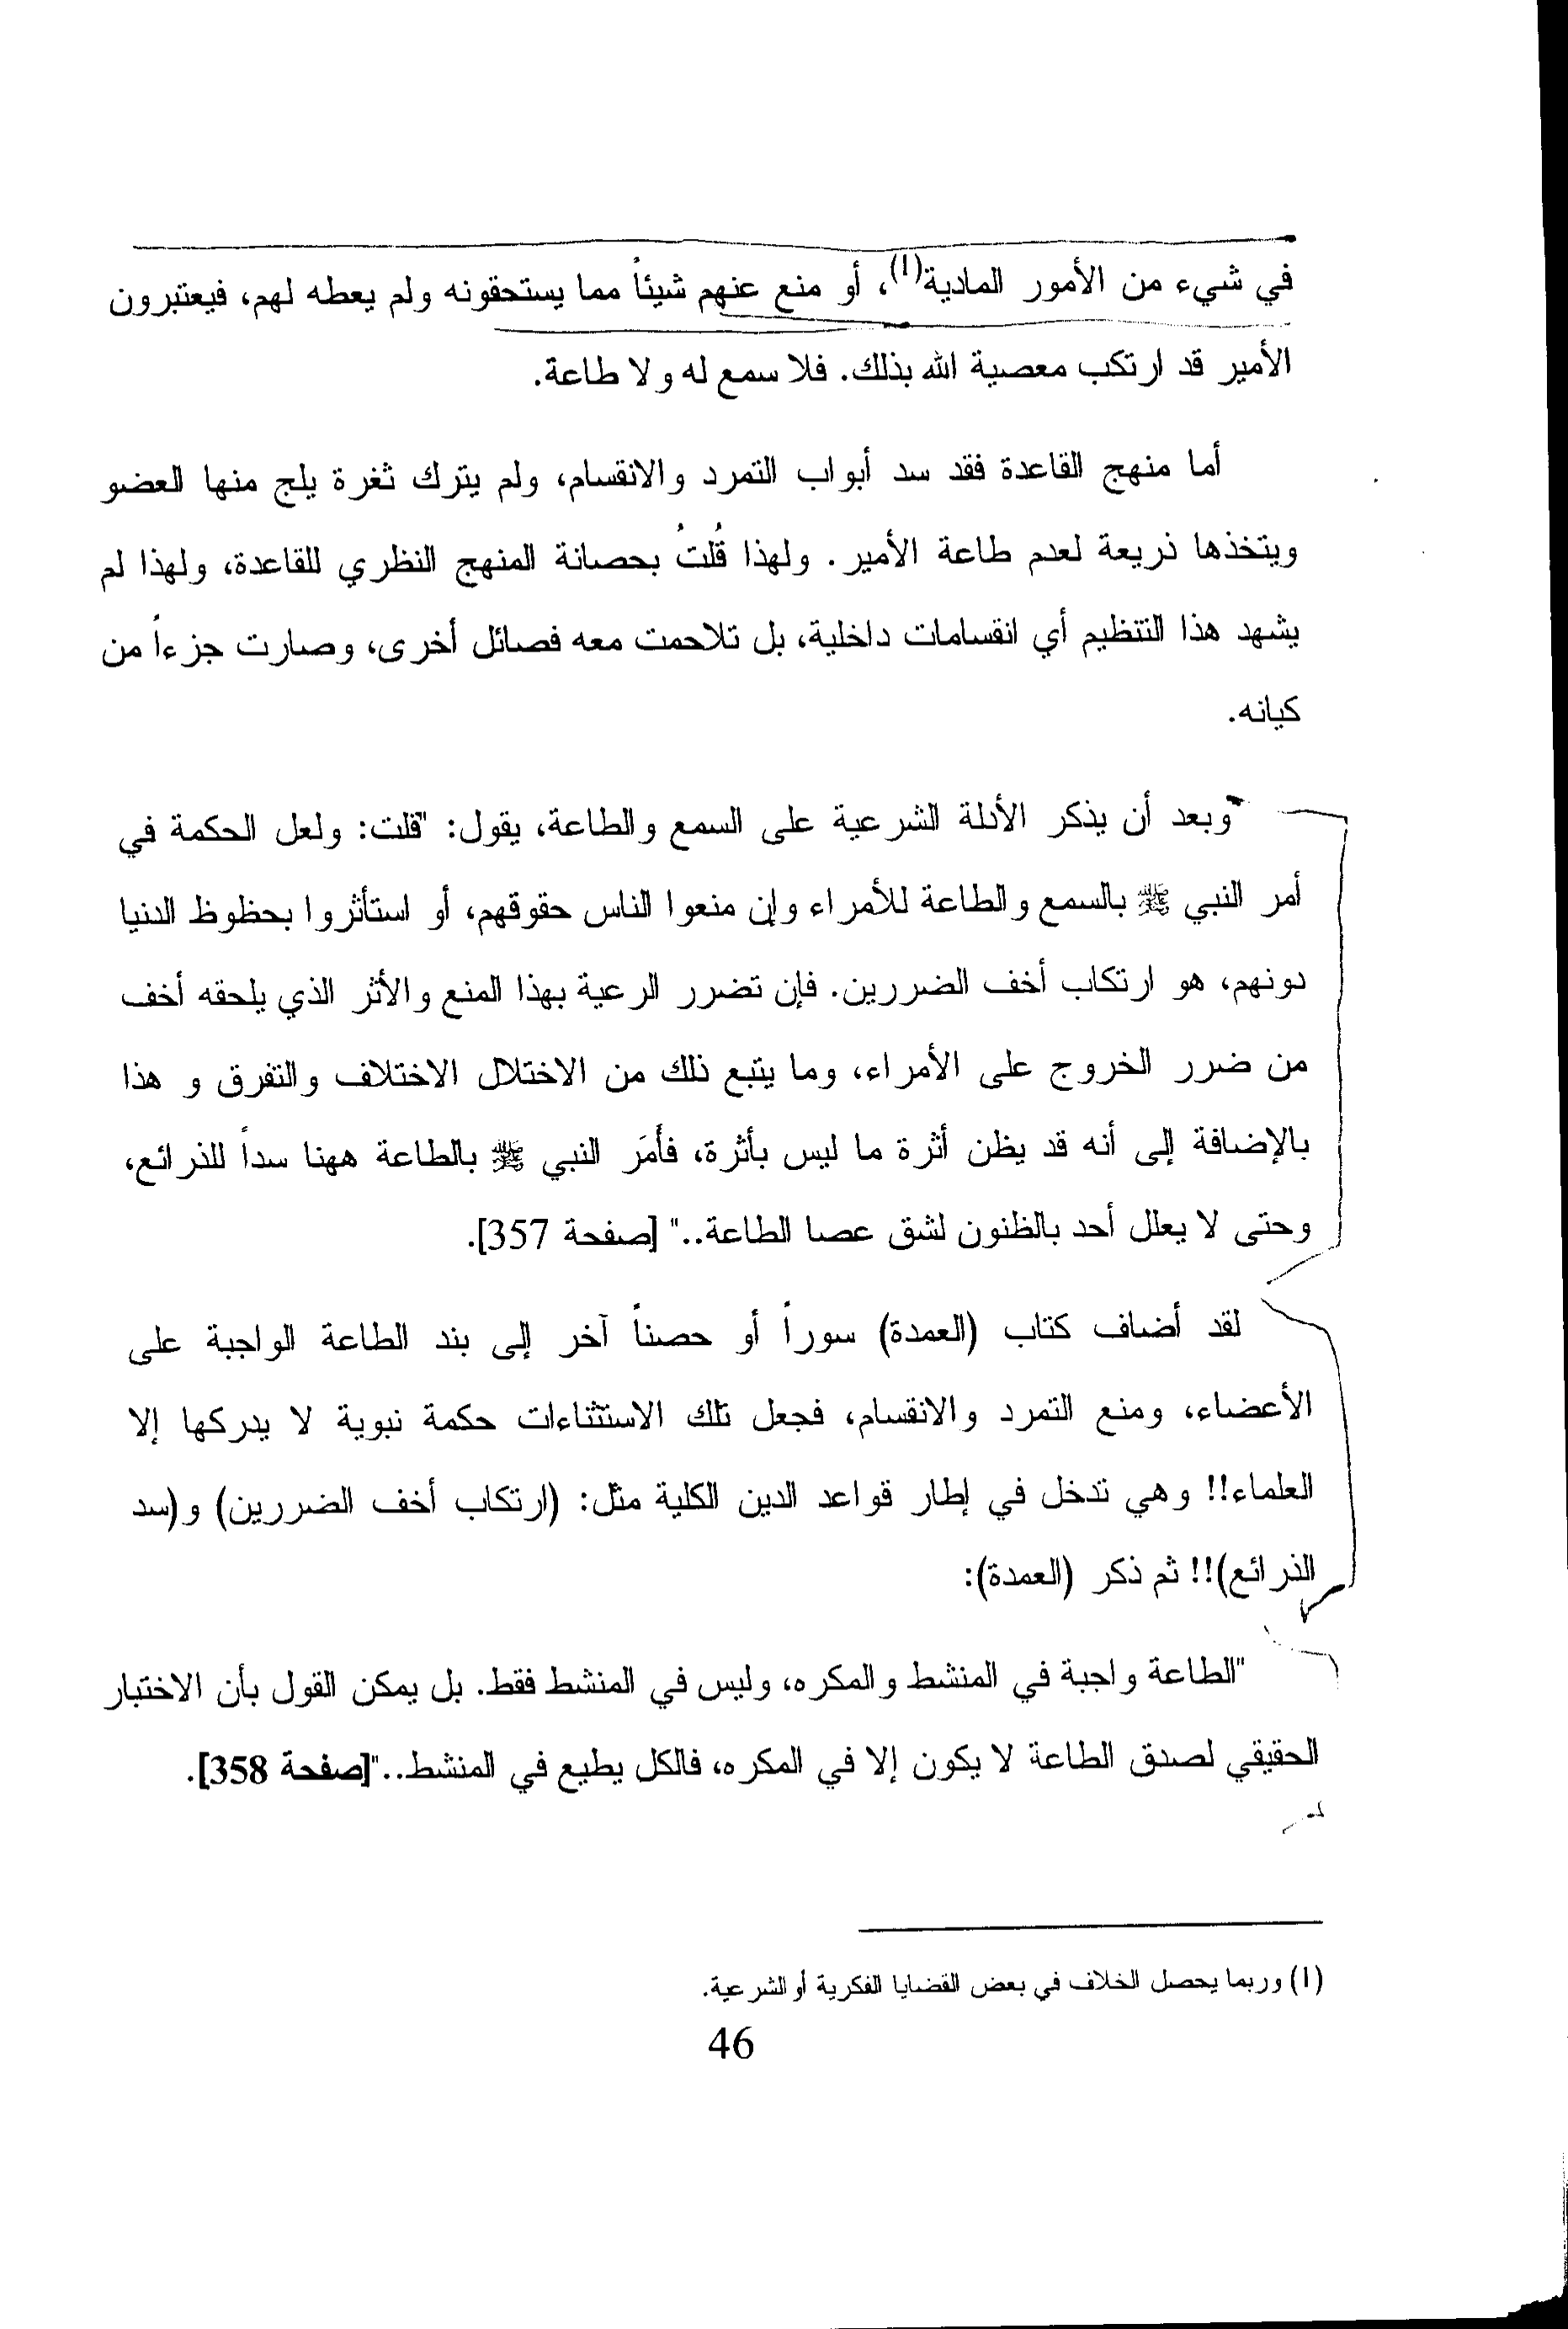 في شيء من الأمور المادية(1)، أو منع عنهم شيئاً مما يستحقونه ولم يعطه لهم، فيعتبرون
الأمير قد ارتكب معصية الله بذلك. فلا سمع له ولا طاعة.
أما منهج القاعدة فقد سد أبواب التمرد والانقسام، ولم يترك ثغرة يلج منها العضو
ويتخذها ذريعة لعدم طاعة الأمير. ولهذا قُلتُ بحصانة المنهج النظري للقاعدة، ولهذا لم
يشهد هذا التنظيم أي انقسامات داخلية، بل تلاحمت معه فصائل أخرى، وصارت جزءاً من
كيانه.
وبعد أن يذكر الأدلة الشرعية على السمع والطاعة، يقول: "قلت: ولعل الحكمة في
أمر النبي ﷺ بالسمع والطاعة للأمراء وإن منعوا الناس حقوقهم، أو استأثروا بحظوظ الدنيا
دونهم، هو ارتكاب أخف الضررين. فإن تضرر الرعية بهذا المنع والأثر الذي يلحقه أخف
من ضرر الخروج على الأمراء، وما يتبع ذلك من الاختلال الاختلاف والتفرق و هذا
بالإضافة إلى أنه قد يظن أثرة ما ليس بأثرة، فأَمَرَ النبي ﷺ بالطاعة ههنا سداً للذرائع،
وحتى لا يعلل أحد بالظنون لشق عصا الطاعة.." [صفحة 357].
لقد أضاف كتاب (العمدة) سوراً أو حصناً آخر إلى بند الطاعة الواجبة على
الأعضاء، ومنع التمرد والانقسام، فجعل تلك الاستثناءات حكمة نبوية لا يدركها إلا
العلماء!! وهي تدخل في إطار قواعد الدين الكلية مثل: (ارتكاب أخف الضررين) و(سد
الذرائع)!! ثم ذكر (العمدة):
"الطاعة واجبة في المنشط والمكره، وليس في المنشط فقط. بل يمكن القول بأن الاختبار
الحقيقي لصدق الطاعة لا يكون إلا في المكره، فالكل يطيع في المنشط.."[صفحة 358].
(1) وربما يحصل الخلاف في بعض القضايا الفكرية أو الشرعية.
46